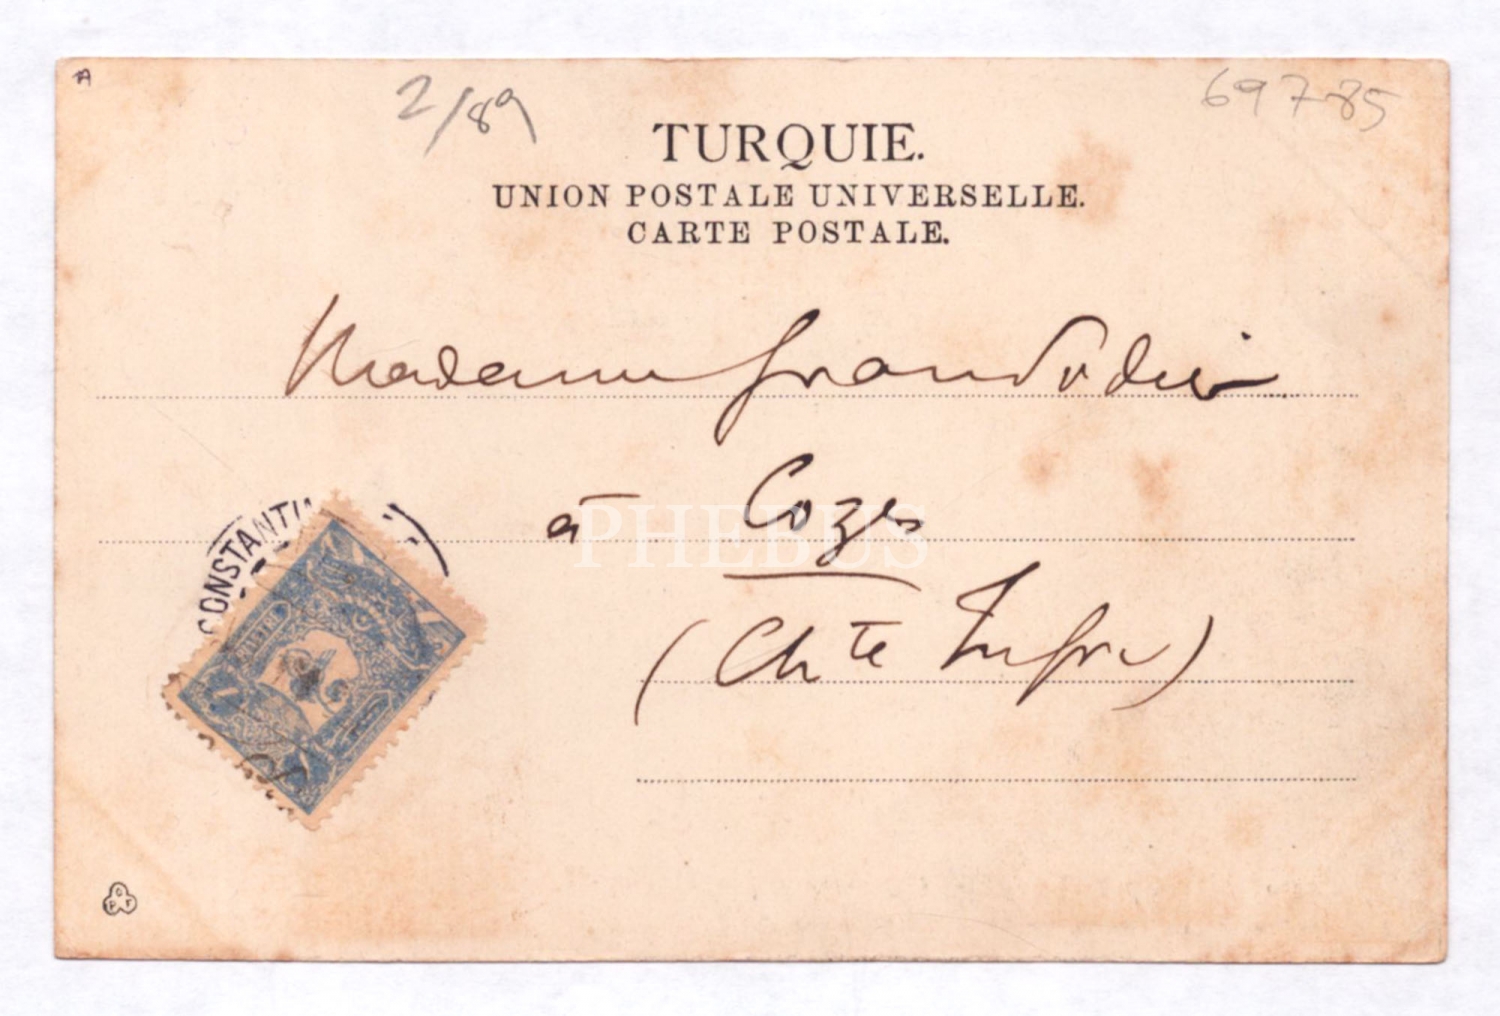 2/89
697-85
TURQUIE.
UNION POSTALE UNIVERSELLE.
CARTE POSTALE.
Madame
à Cozes
(Chte Infre)
CONSTANTIN
PHEBUS
1